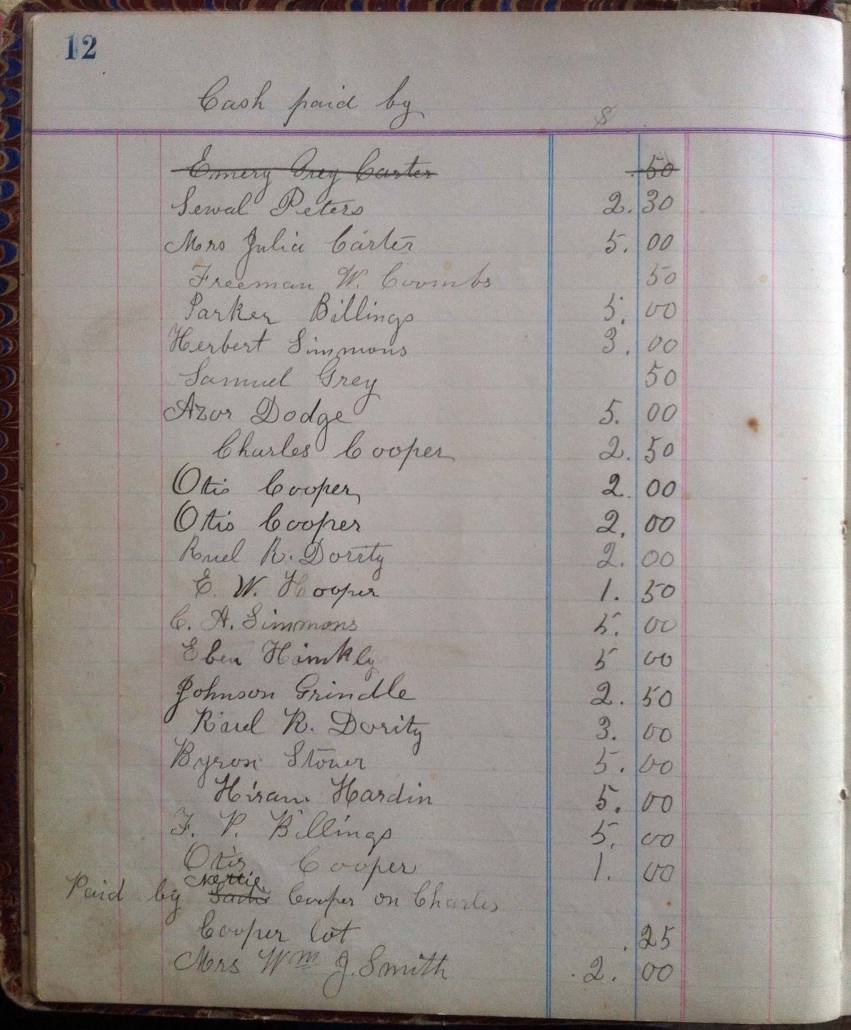 12
Cash paid by $
Emery Grey Carter .50
Sewal Peters 2.30
Mrs Julia Carter 5.00
Freeman W. Coombs 50
Parker Billings 5.00
Herbert Simmons 3.00
Samuel Grey 50
Azor Dodge 5.00
Charles Cooper 2.50
Otis Cooper 2.00
Otis Cooper 2.00
Ruel R. Dority 2.00
E. W. Hooper 1.50
C. A. Simmons 5.00
Eben Hinkly 5 00
Johnson Grindle 2.50
Ruel R. Dority 3.00
Byron Stover 5.00
Hiram Hardin 5.00
F. P. Billings 5.00
Otis Cooper 1.00
Nettie
Paid by Cooper on Charles
Cooper lot .25
Mrs Wm J. Smith 2.00